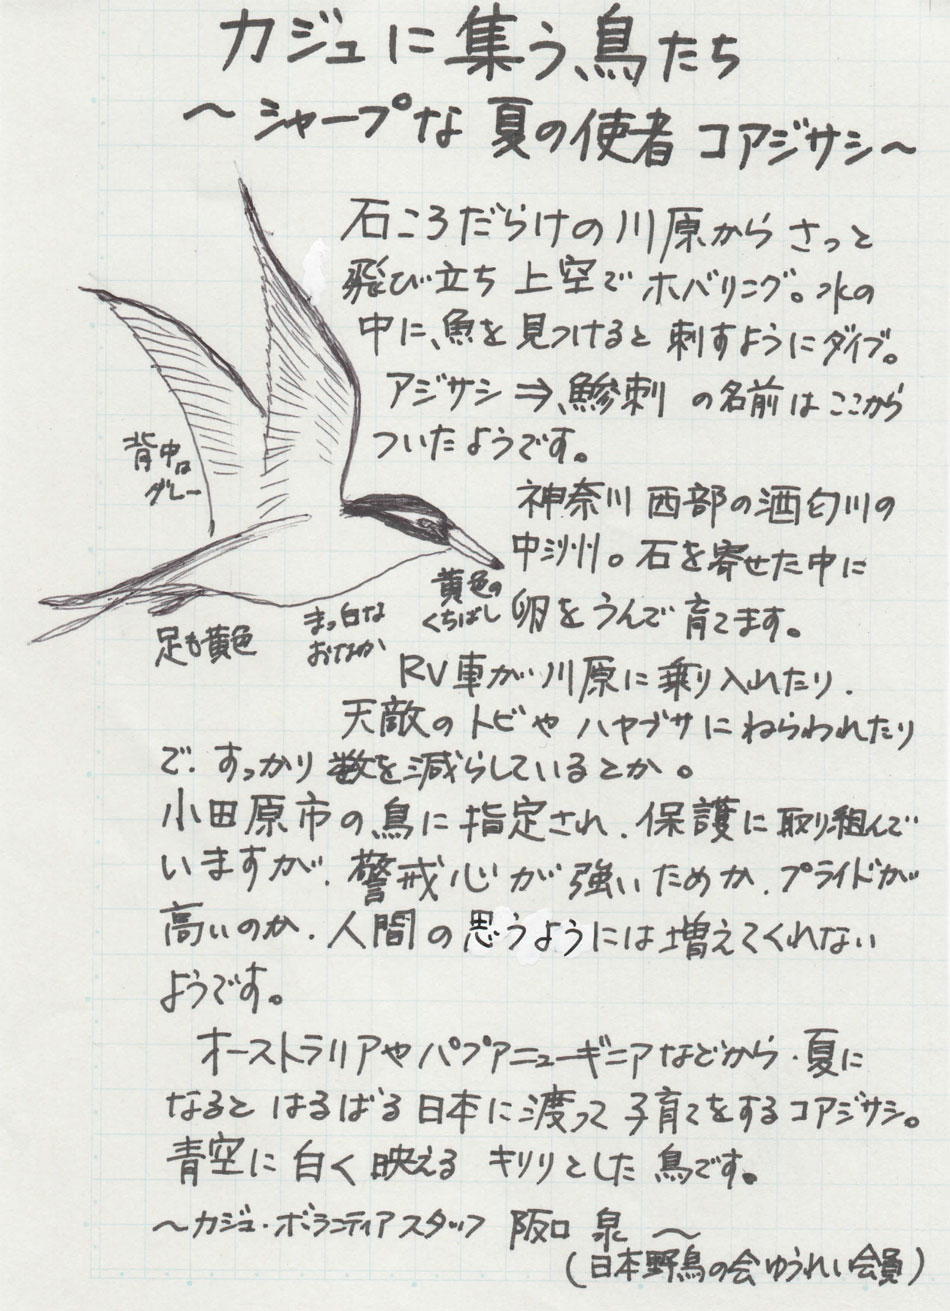 カジュに集う鳥たち
～シャープな 夏の使者 コアジサシ～
石ころだらけの川原からさっと
飛び立ち 上空でホバリング。水の
中に、魚を見つけると 刺すようにダイブ。
アジサシ⇒鯵刺 の名前はここから
ついたようです。
背中は
グレー
神奈川西部の酒匂川の
中洲。石を寄せた中に
卵をうんで育てます。
黄色の
くちばし
まっ白な
おなか
足も黄色
RV車が川原に乗り入れたり、
天敵のトビやハヤブサにねらわれたり
で、すっかり数を減らしているとか。
小田原市の鳥に指定され、保護に取り組んで
いますが、警戒心が強いためか、プライドが
高いのか、人間の思うようには増えてくれない
ようです。
オーストラリアやパプアニューギニアなどから、夏に
なると はるばる日本に渡って子育てをするコアジサシ。
青空に白く映える キリリとした鳥です。
～カジュ・ボランティアスタッフ 阪口 泉～
(日本野鳥の会ゆうれい会員)